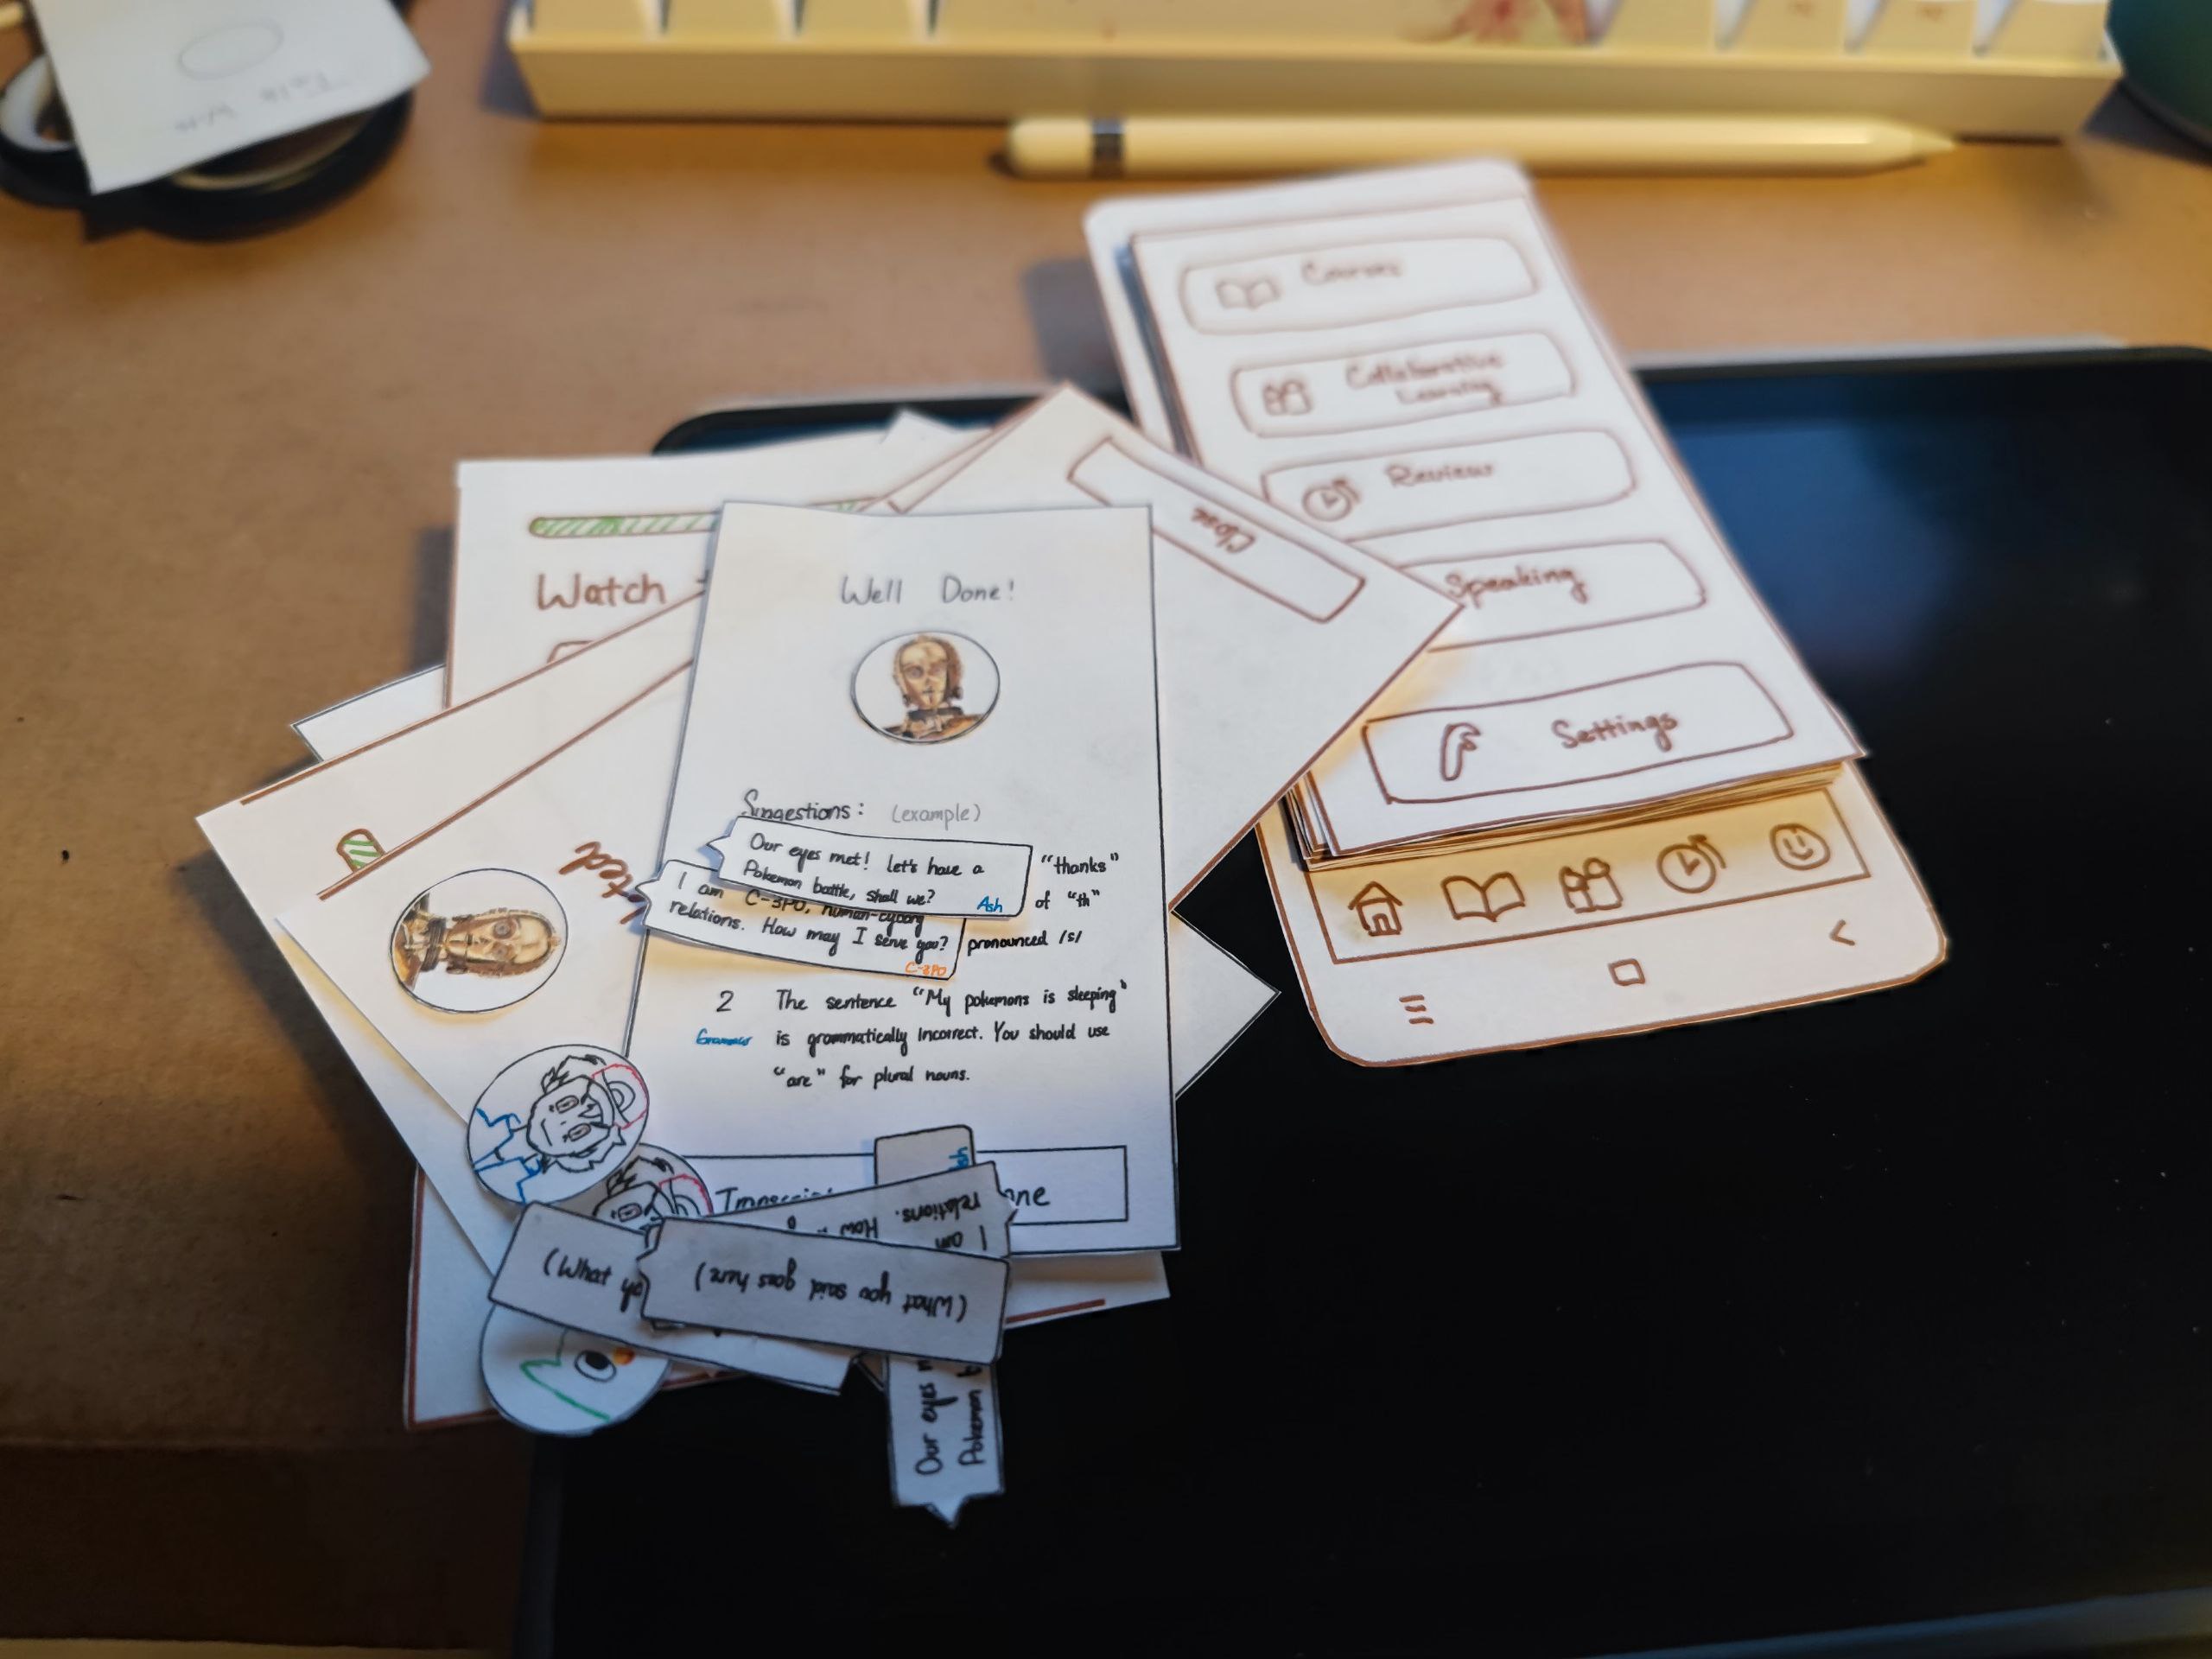 Courses
Collaborative
Learning
Review
Speaking
Settings
Close
Watch
Well Done!
Suggestions: (example)
Our eyes met! let's have a
Pokemon battle, shall we?
Ash
I am C-3PO, human-cyborg
relations. How may I serve you?
C-3PO
"thanks"
of "th"
pronounced /s/
2 The sentence "My pokemons is sleeping"
Grammar is grammatically incorrect. You should use
"are" for plural nouns.
relations. How
I am
(What yo
(What you said goes here)
Our eyes
Pokemon